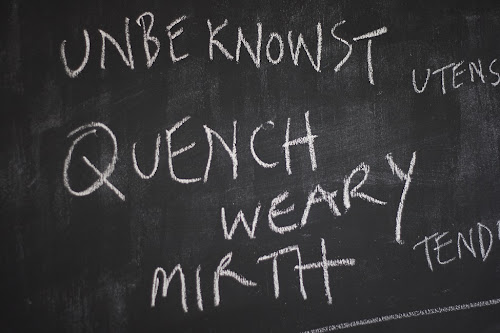 UNBEKNOWST
UTENS
QUENCH
WEARY
TEND
MIRTH